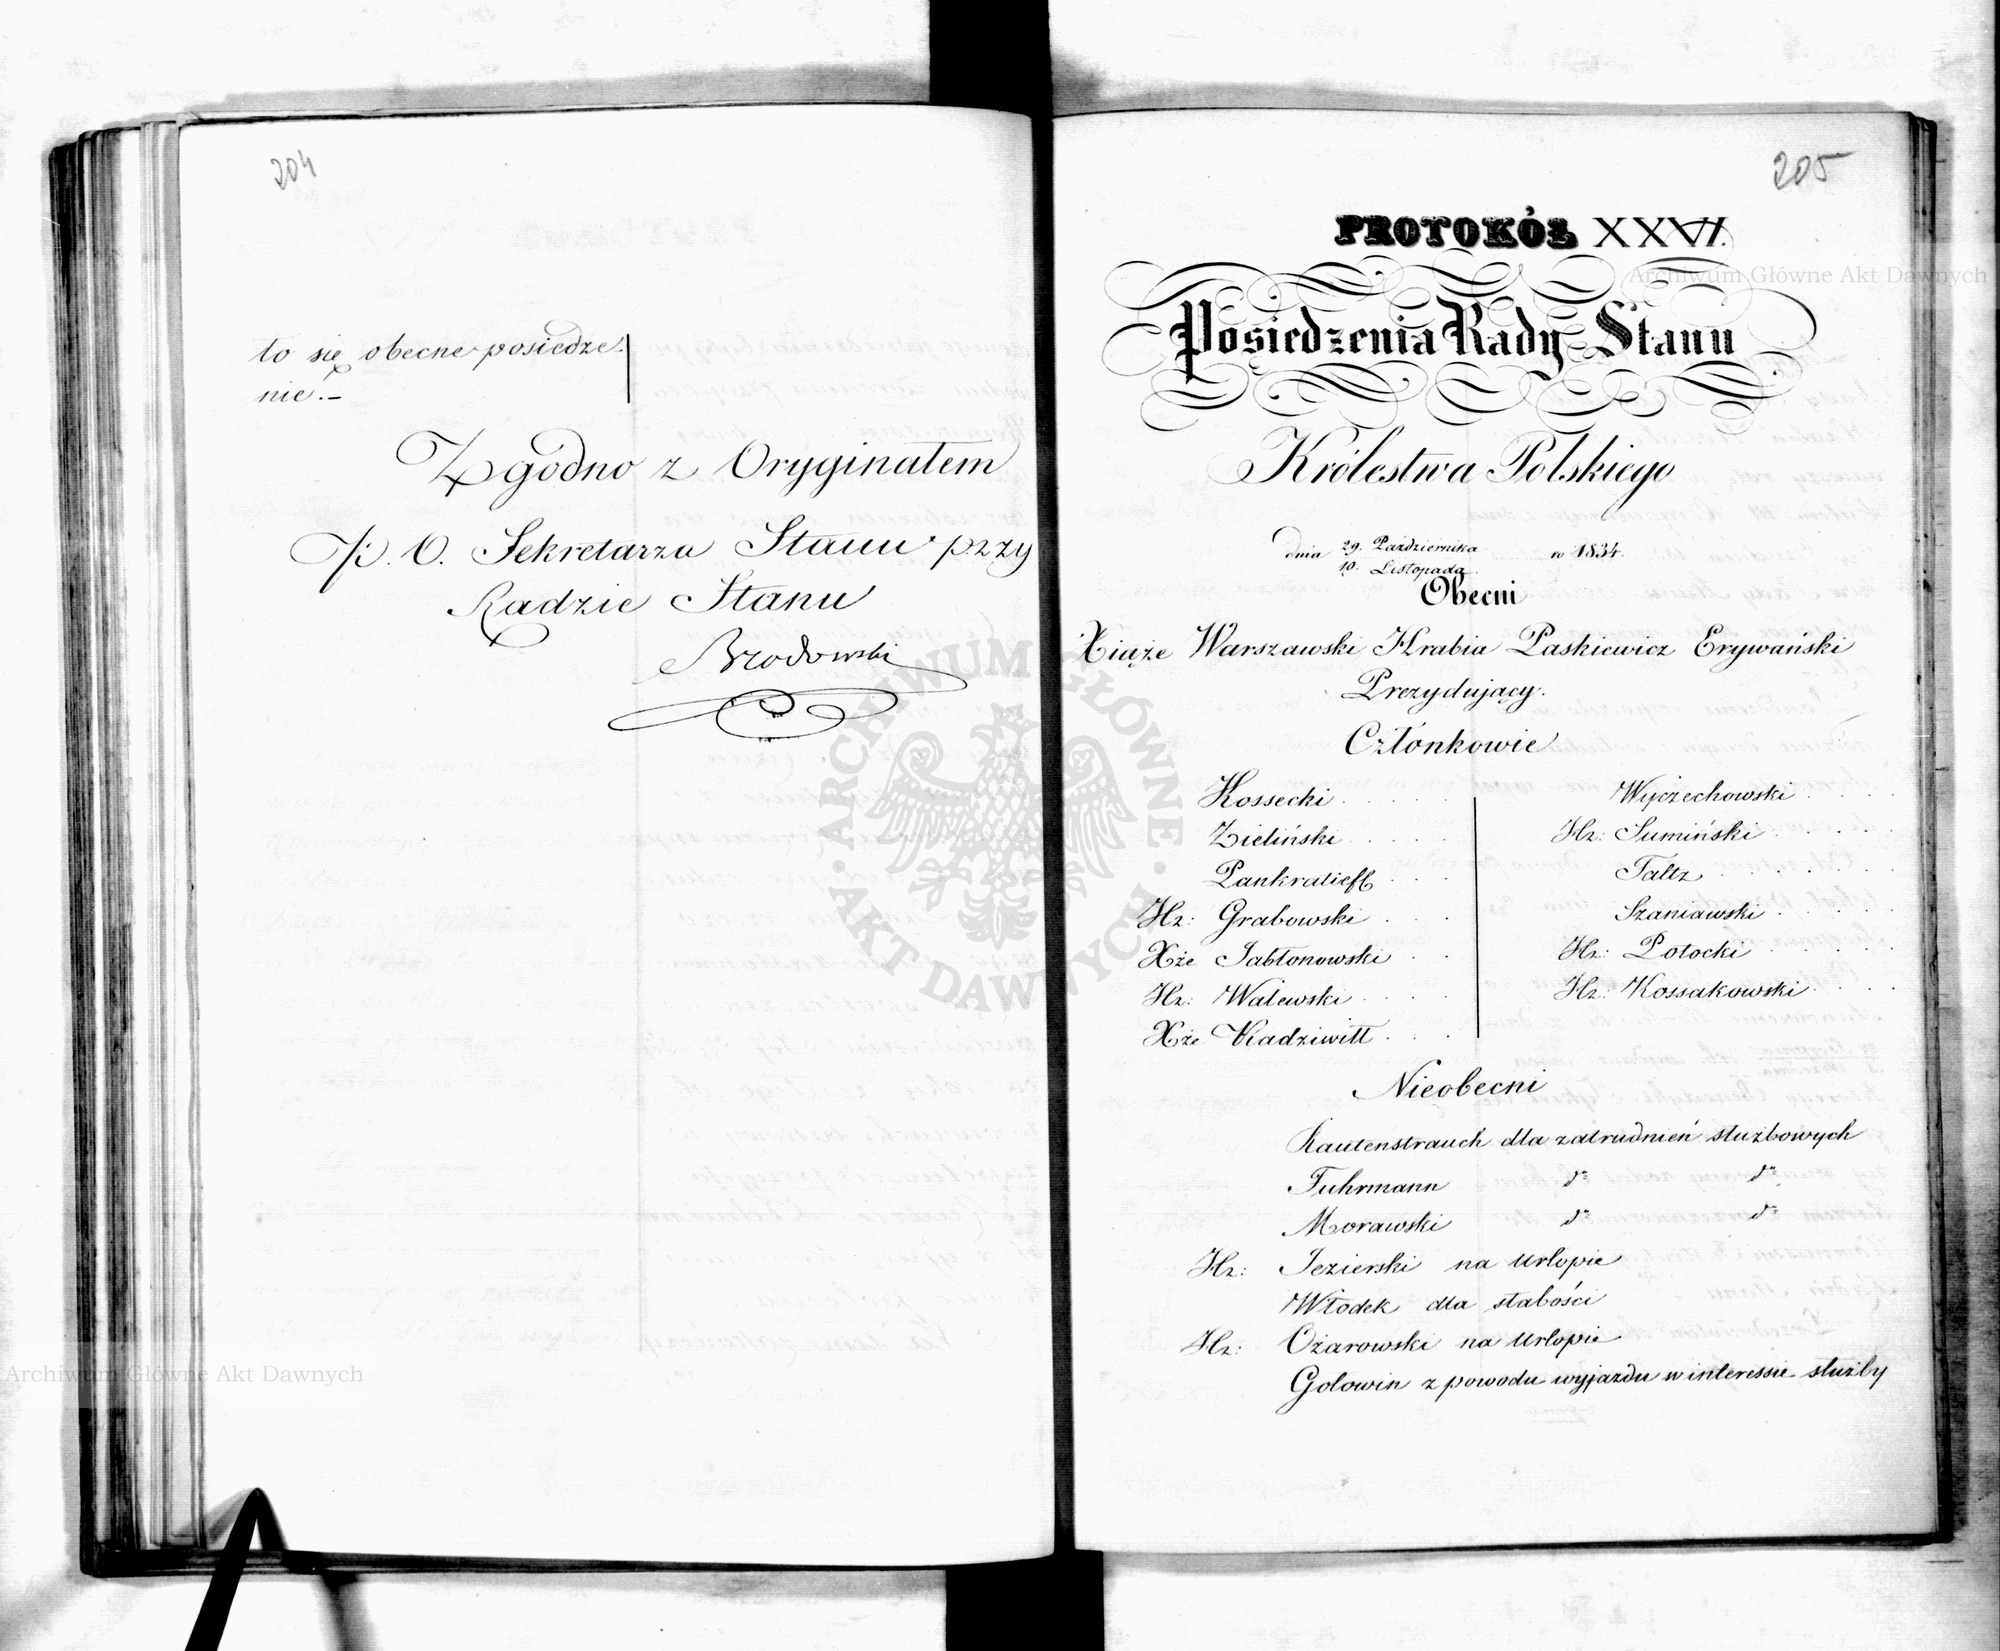 204
to się obecne posiedze-
nie.-
Zgodno z Oryginałem
p. O. Sekretarza Stanu przy
Radzie Stanu
Brodowski
205
PROTOKÓŁ
Posiedzenia Rady Stanu
Królestwa Polskiego
dnia 29. Października / 10. Listopada ro 1834.
Obecni
Xiąże Warszawski Hrabia Paskiewicz Erywański
Prezydujący.
Członkowie
Kossecki
Zieliński
Pankratieff
Hr: Grabowski
Xże Jabłonowski
Hr: Walewski
Xże Radziwiłł
Wyczechowski
Hr: Sumiński
Faltz
Szaniawski
Hr: Potocki
Hr: Kossakowski
Nieobecni
Rautenstrauch dla zatrudnień służbowych
Fuhrmann do do
Morawski do do
Hr: Jezierski na urlopie
Włodek dla słabości
Hr: Ożarowski na urlopie
Gołowin z powodu wyjazdu w interessie służby
ARCHIWUM GŁÓWNE AKT DAWNYCH
Archiwum Główne Akt Dawnych
Archiwum Główne Akt Dawnych